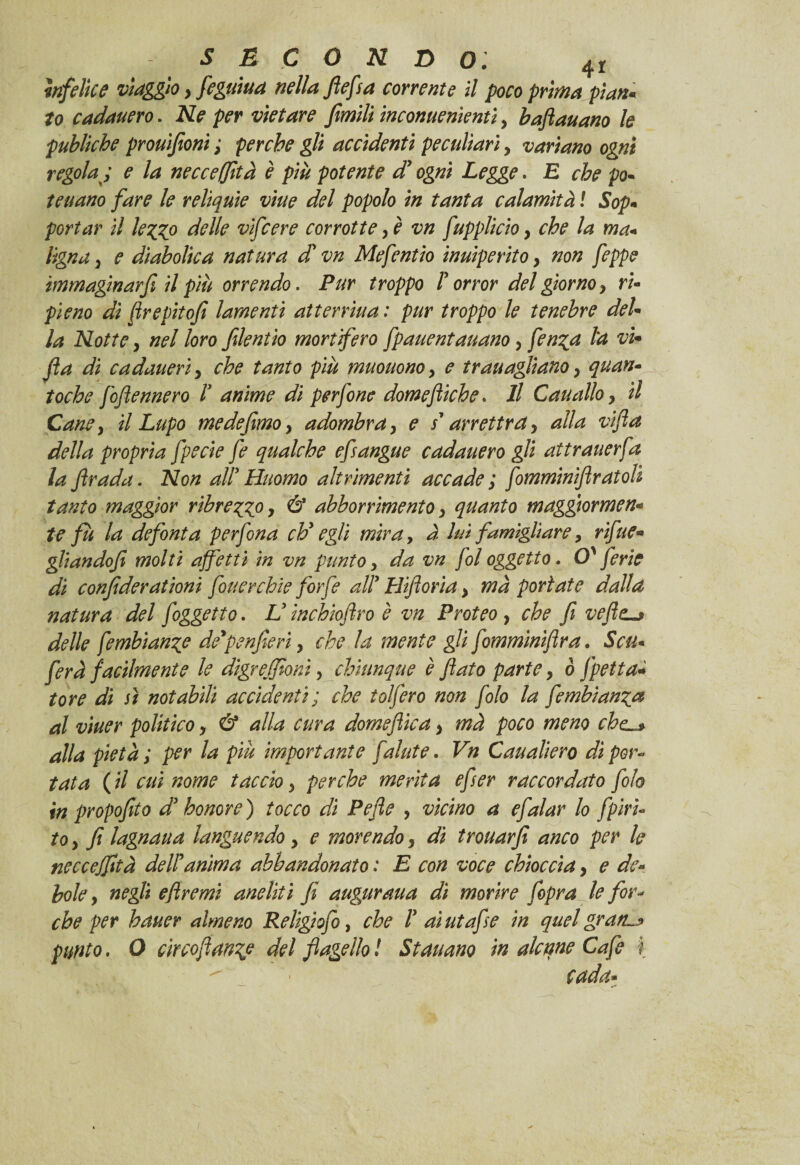 SECONDO. 41
infelice viaggio, ſeguiua nella ſteſsa corrente il poco prima pian-
to cadauero. Ne per vietare ſimili inconuenienti, baſtauano le
publiche prouiſioni; perche gli accidenti peculiari, variano ogni
regola; e la necceſſità è più potente d'ogni Legge. E che po-
teuano fare le reliquie viue del popolo in tanta calamità! Sop-
portar il lezzo delle viſcere corrotte, è vn ſupplicio, che la ma-
ligna, e diabolica natura d'vn Meſentio inuiperito, non ſeppe
immaginarſi il più orrendo. Pur troppo l'orror del giorno, ri-
pieno di ſtrepitoſi lamenti atterriua: pur troppo le tenebre del-
la Notte, nel loro ſilentio mortifero ſpauentauano, ſenza la vi-
ſta di cadaueri, che tanto più muouono, e trauagliano, quan-
toche ſoſtennero l'anime di perſone domeſtiche. Il Cauallo, il
Cane, il Lupo medeſimo, adombra, e s'arrettra, alla viſta
della propria ſpecie ſe qualche eſsangue cadauero gli attrauerſa
la ſtrada. Non all'Huomo altrimenti accade; ſomminiſtratoli
tanto maggior ribrezzo, & abborrimento, quanto maggiormen-
te fù la defonta perſona ch'egli mira, à lui famigliare, riſue-
gliandoſi molti affetti in vn punto, da vn ſol oggetto. O' ſerie
di conſiderationi ſouerchie forſe all'Hiſtoria, mà portate dalla
natura del ſoggetto. L'inchioſtro è vn Proteo, che ſi veſte
delle ſembianze de'penſieri, che la mente gli ſomminiſtra. Scu-
ſerà facilmente le digreſſioni, chiunque è ſtato parte, ò ſpetta-
tore di sì notabili accidenti; che tolſero non ſolo la ſembianza
al viuer politico, & alla cura domeſtica, mà poco meno che
alla pietà; per la più importante ſalute. Vn Caualiero di por-
tata (il cui nome taccio, perche merita eſser raccordato ſolo
in propoſito d'honore) tocco di Peſte, vicino a eſalar lo ſpiri-
to, ſi lagnaua languendo, e morendo, di trouarſi anco per le
necceſſità dell'anima abbandonato: E con voce chioccia, e de-
bole, negli eſtremi aneliti ſi auguraua di morire ſopra le for-
che per hauer almeno Religioſo, che l'aiutaſse in quel gran
punto. O circoſtanze del flagello! Stauano in alcune Caſe i
cada-